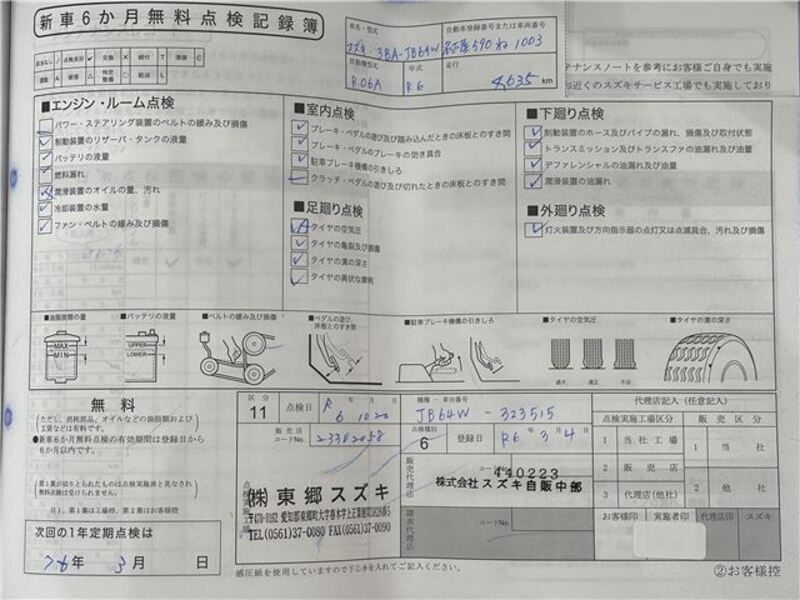 新車6か月無料点検記録簿
車名・型式
スズキ・3BA-JB64W
自動車登録番号または車両番号
名古屋590 ね 1003
自動機型式
R06A
年式
R6
走行
4635 km
点検実施
交換
締付
清掃
調整
修理
特定整備
給油
テナンスノートを参考にお客様ご自身でも実施
お近くのスズキサービス工場でも実施しており
■エンジン・ルーム点検
パワー・ステアリング装置のベルトの緩み及び損傷
制動装置のリザーバ・タンクの液量
バッテリの液量
燃料漏れ
潤滑装置のオイルの量、汚れ
冷却装置の水量
ファン・ベルトの緩み及び損傷
■室内点検
ブレーキ・ペダルの遊び及び踏み込んだときの床板とのすき間
ブレーキ・ペダルのブレーキの効き具合
駐車ブレーキ機構の引きしろ
クラッチ・ペダルの遊び及び切れたときの床板とのすき間
■足廻り点検
タイヤの空気圧
タイヤの亀裂及び損傷
タイヤの溝の深さ
タイヤの異状な摩耗
■下廻り点検
制動装置のホース及びパイプの漏れ、損傷及び取付状態
トランスミッション及びトランスファの油漏れ及び油量
デファレンシャルの油漏れ及び油量
潤滑装置の油漏れ
■外廻り点検
灯火装置及び方向指示器の点灯又は点滅具合、汚れ及び損傷
■バッテリの液量
■ベルトの緩み及び損傷
■ペダルの遊び、床板とのすき間
■駐車ブレーキ機構の引きしろ
■タイヤの空気圧
■タイヤの溝の深さ
MAX
MIN
UPPER
LOWER
過大
適正
不足
無料
(ただし、消耗部品、オイルなどの油脂類および工賃などは有料です。)
●新車6か月無料点検の有効期間は登録日から6か月以内です。
注1、第1量は工場控、第2量はお客様控
次回の1年定期点検は
76年 3月 日
区分
11
点検日
R 6 10 20
年 月 日
機種-車台番号
JB64W - 323515
販売店コードNo.
23382058
点検種別
6
登録日
R6年 3月 4日
点検実施工場
㈱東郷スズキ
〒470-0162 愛知郡東郷町大字春木字上正葉廻3828番5
TEL(0561)37-0080 FAX(0561)37-0090
販売代理店
コードNo.
440223
株式会社スズキ自販中部
請求代理店
コードNo.
代理店記入(任意記入)
点検実施工場区分
販売区分
1 当社工場
2 販売店
3 代理店(他社)
1 当社
2 他社
お客様印
実施者印
代理店印
スズキ
感圧紙を使用していますので下じきを入れてご記入ください。
②お客様控